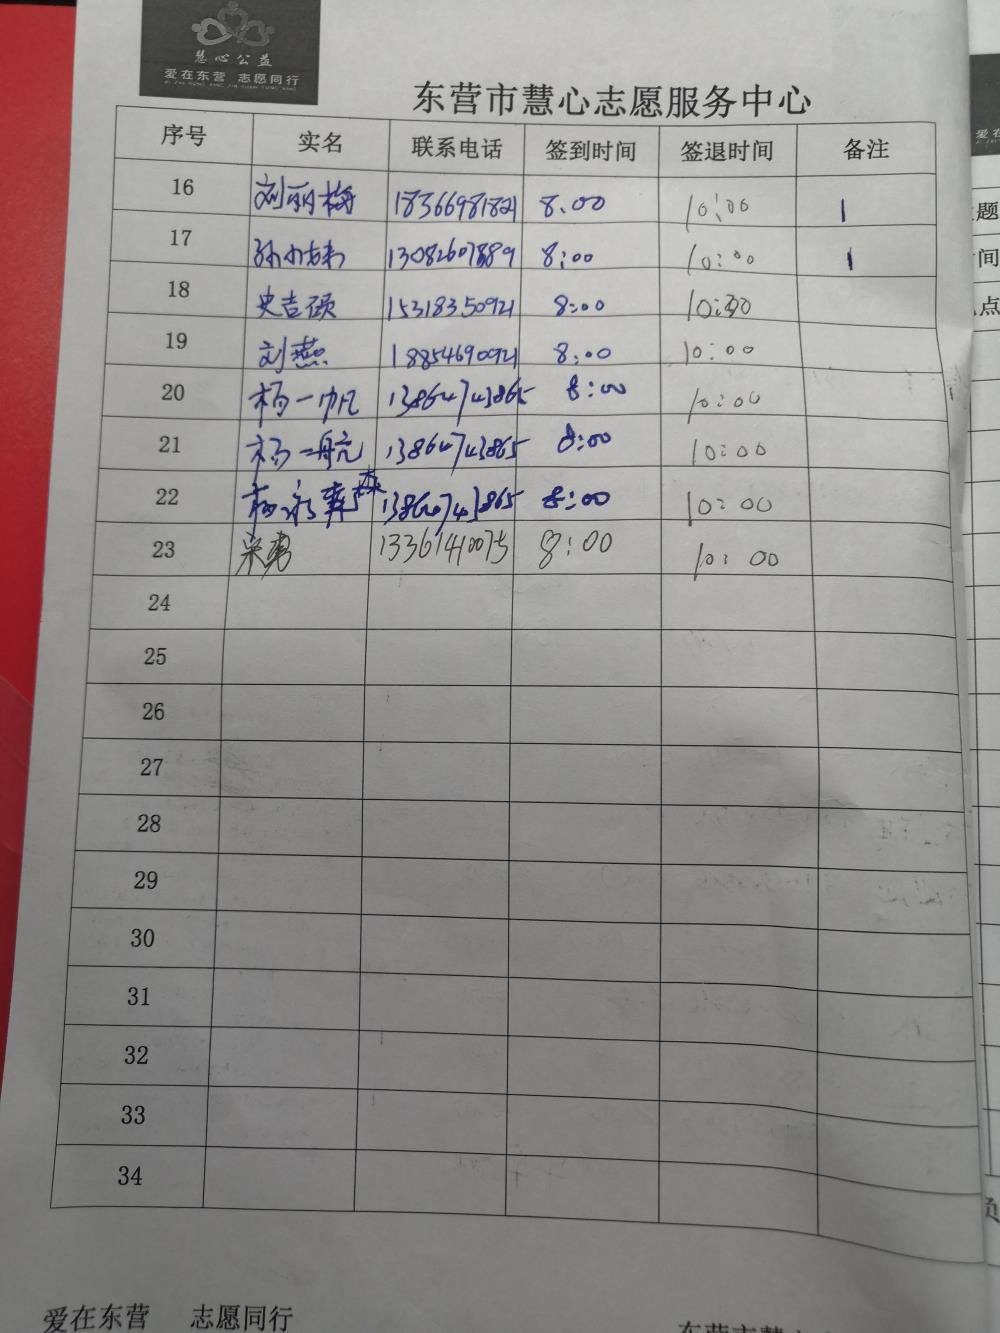 慧心公益
爱在东营 志愿同行
东营市慧心志愿服务中心
序号 实名 联系电话 签到时间 签退时间 备注
16 刘丽梅 18366981821 8:00 10:00 1
17 孙 13082607889 8:00 10:00 1
18 史吉硕 15318350921 8:00 10:00
19 刘燕 18854690921 8:00 10:00
20 杨一帆 13864743865 8:00 10:00
21 杨一航 13864743865 8:00 10:00
22 杨永森 13864743865 8:00 10:00
23 宋勇 13361410075 8:00 10:00
24
25
26
27
28
29
30
31
32
33
34
题
间
点
爱在东营 志愿同行
东营市慧